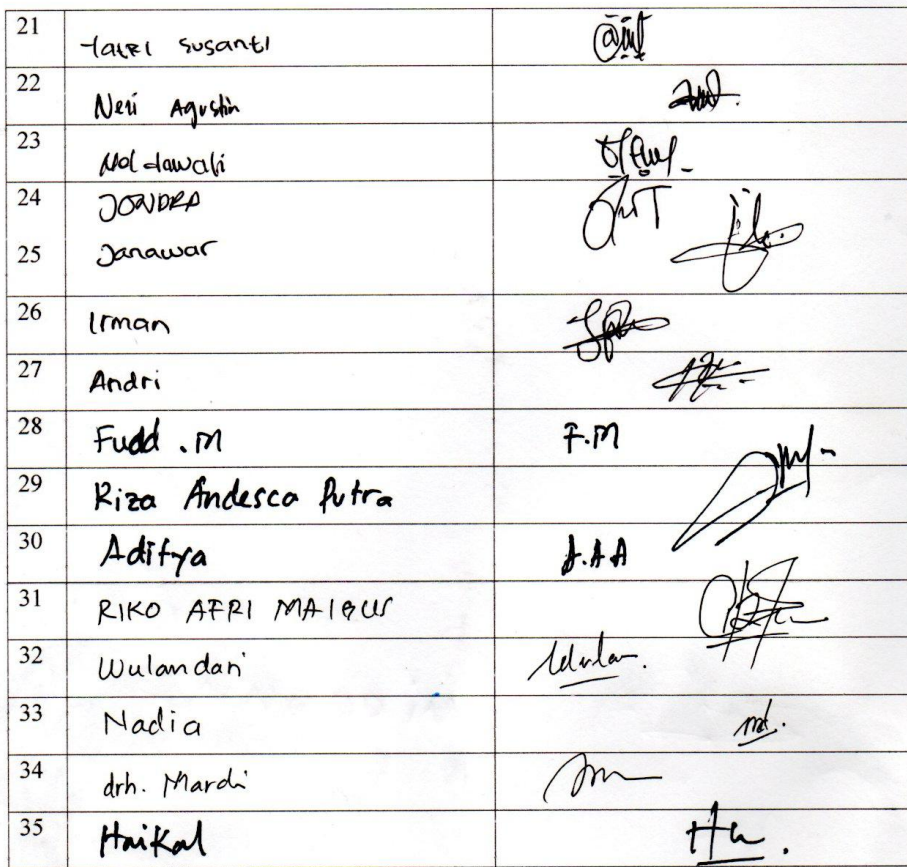 21 Susanti
22 Neri Agustin
23
24 JONDRA
25 Janawar
26 Irman
27 Andri
28 Fudd .M F.M
29 Riza Andesca Putra
30 Aditya A.AA
31 RIKO AFRI MAIBUS
32 Wulandari Wulan.
33 Nadia nd.
34 drh. Mardi
35 Haikal